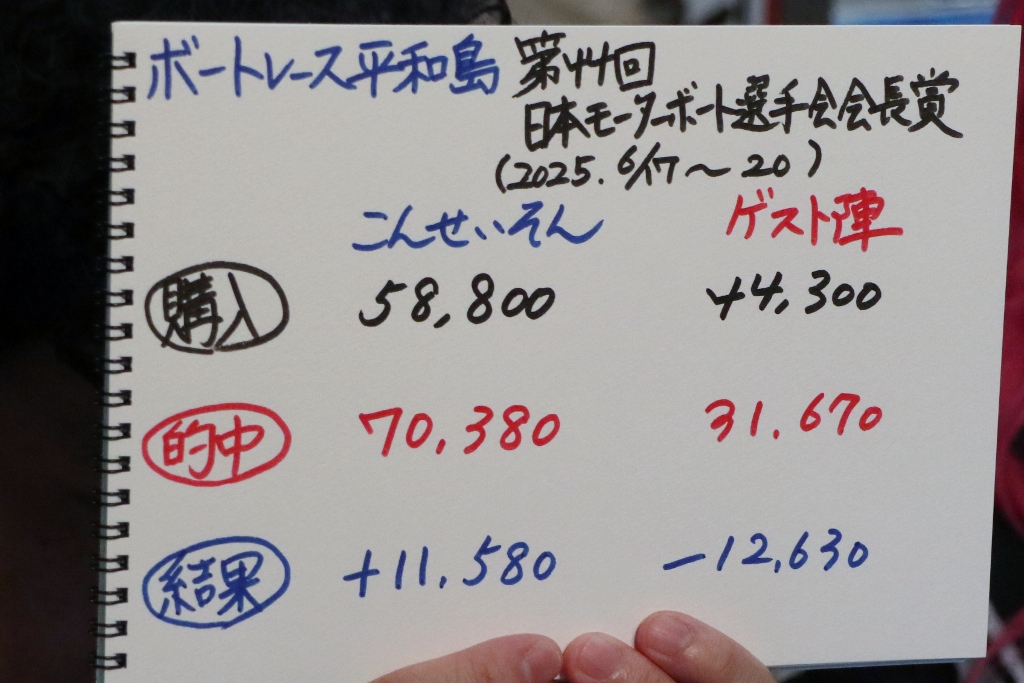 ボートレース平和島 第44回
日本モーターボート選手会会長賞
(2025.6/17～20)
こんせいそん ゲスト陣
購入 58,800 44,300
的中 70,380 31,670
結果 +11,580 -12,630